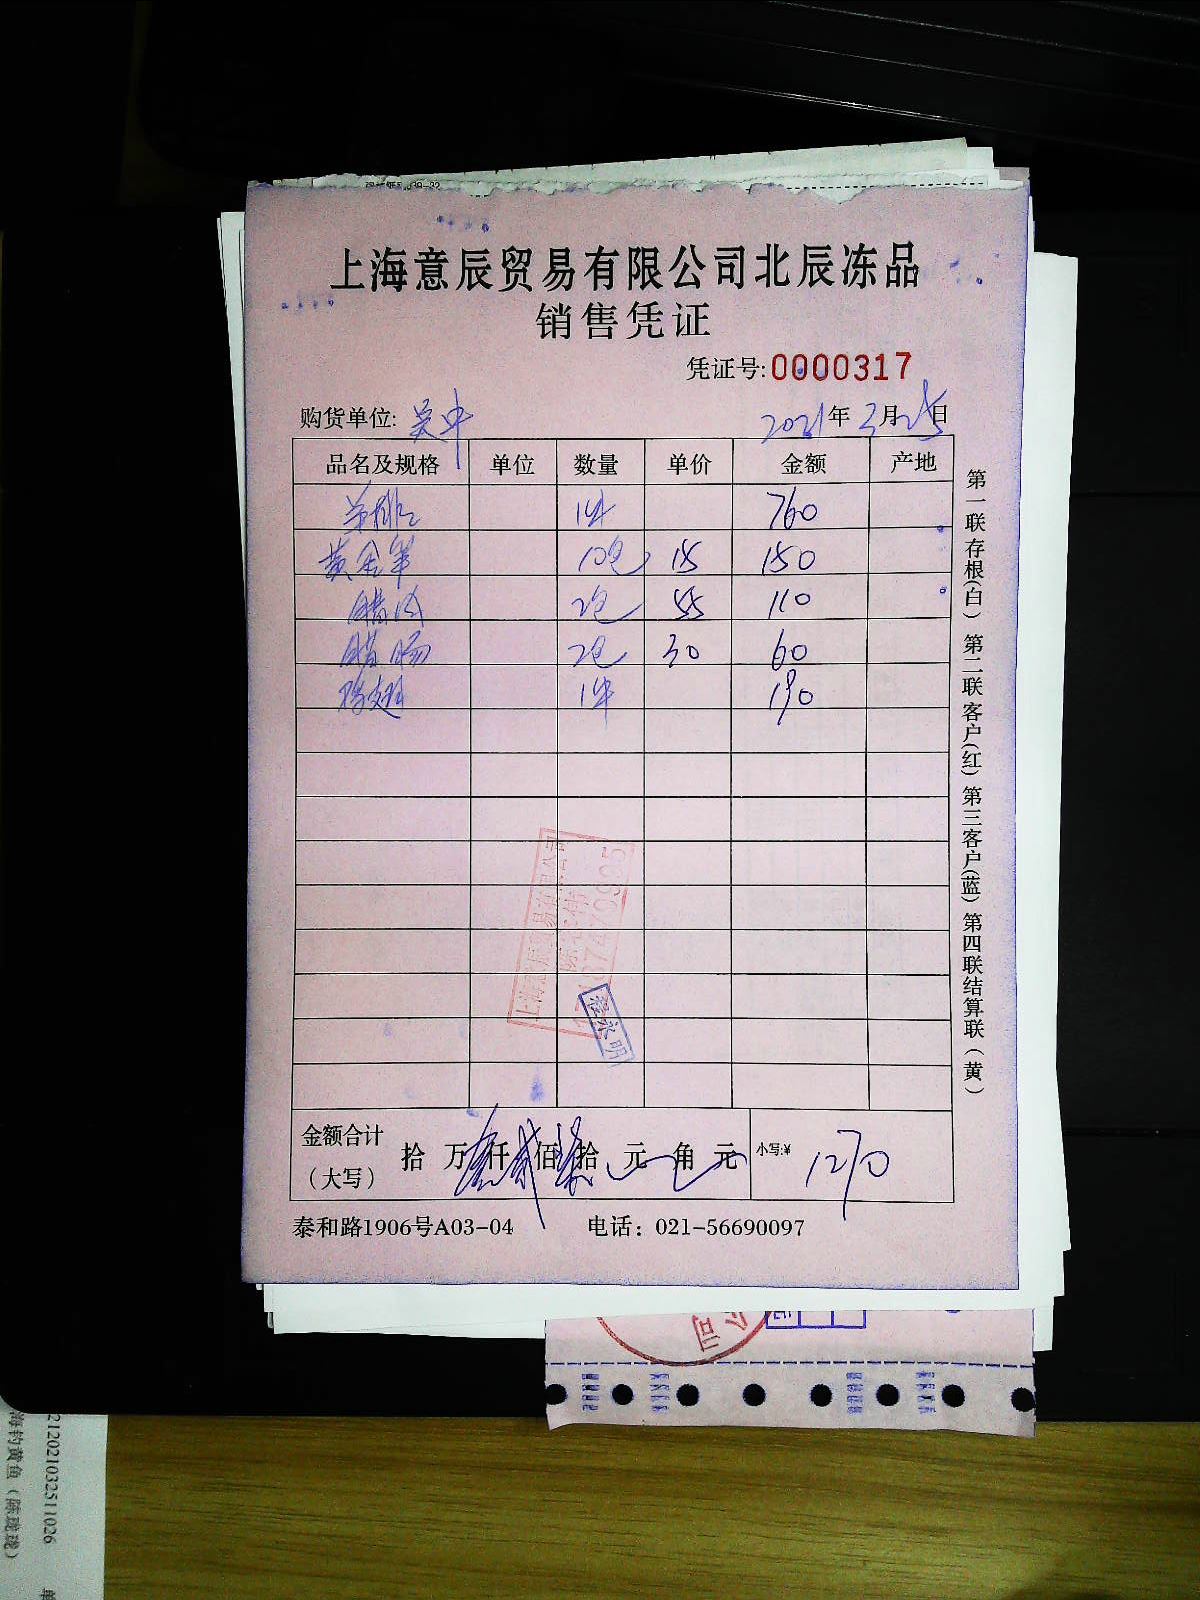 上海意辰贸易有限公司北辰冻品
销售凭证
凭证号:0000317
购货单位: 吴中 2021年3月25日
品名及规格 单位 数量 单价 金额 产地
1件 760
黄金笋 10包 15 150
腊肉 2包 55 110
腊肠 2包 30 60
1件 190
金额合计
(大写)
拾 万 壹仟 贰佰 柒拾 元 角 元
小写:¥ 1270
泰和路1906号A03-04 电话: 021-56690097
第一联存根(白) 第二联客户(红) 第三客户(蓝) 第四联结算联(黄)
程永明
212021032511026